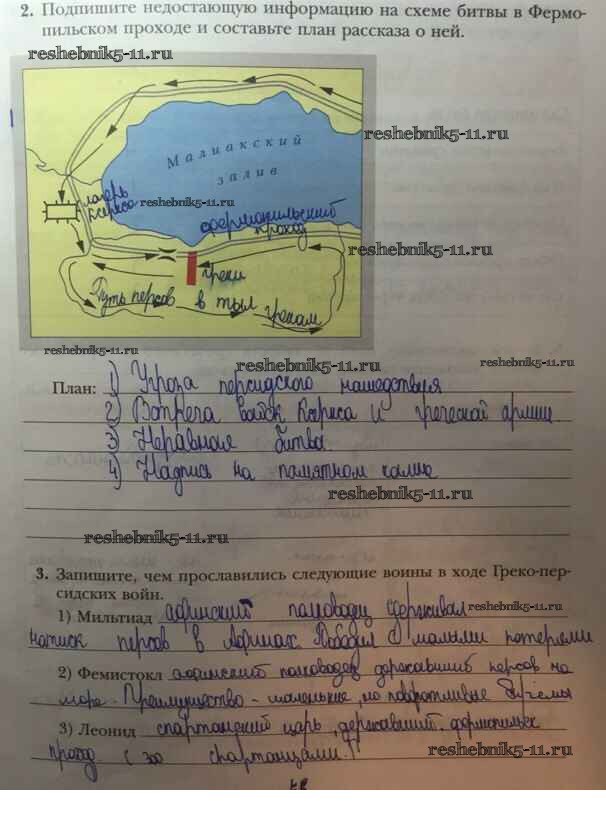 2. Подпишите недостающую информацию на схеме битвы в Фермо-
пильском проходе и составьте план рассказа о ней.
reshebnik5-11.ru
reshebnik5-11.ru
Малиакский
залив
лагерь
Ксеркса
reshebnik5-11.ru
фермопильский
проход
reshebnik5-11.ru
греки
Путь персов в тыл грекам
reshebnik5-11.ru
reshebnik5-11.ru
reshebnik5-11.ru
План: 1) Угроза персидского нашествия
2) Встреча войск Ксеркса и греческой армии
3) Неравная битва
4) Надпись на памятном камне
reshebnik5-11.ru
reshebnik5-11.ru
3. Запишите, чем прославились следующие воины в ходе Греко-пер-
сидских войн.
1) Мильтиад афинский полководец сдерживал reshebnik5-11.ru
натиск персов в Афинах. Победил с малыми потерями
2) Фемистокл афинский полководец державший персов на
море. Преимущество - маленькие, но поворотливые
3) Леонид спартанский царь, державший фермопильск
проход с 300 спартанцами.
reshebnik5-11.ru